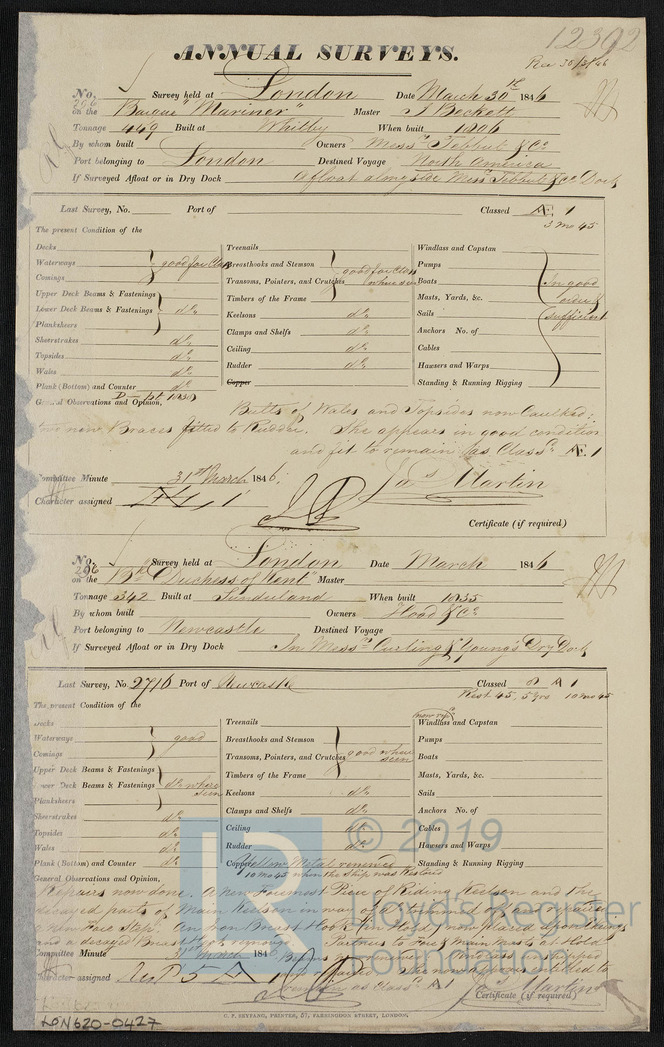 12392
ANNUAL SURVEYS.
Rec 30/3/46
No. 296 Survey held at London Date March 30th 1846
on the Barque "Mariner" Master J Beckett
Tonnage 449 Built at Whitby When built 1806
By whom built Owners Messrs Tebbut & Co
Port belonging to London Destined Voyage North America
If Surveyed Afloat or in Dry Dock Afloat alongside Messrs Tebbut & Co's Dock
Last Survey, No. Port of Classed Æ 1
3 mo 45
The present Condition of the
Decks
Waterways good for Class
Comings
Upper Deck Beams & Fastenings
Lower Deck Beams & Fastenings do
Planksheers
Sheerstrakes do
Topsides do
Wales do
Plank (Bottom) and Counter do
Treenails
Breasthooks and Stemson good for Class
Transoms, Pointers, and Crutches where seen
Timbers of the Frame
Keelsons do
Clamps and Shelfs do
Ceiling do
Rudder do
Copper
Windlass and Capstan
Pumps
Boats In good
Masts, Yards, &c. order &
Sails sufficient
Anchors No. of
Cables
Hawsers and Warps
Standing & Running Rigging
General Observations and Opinion,
Butts of Wales and Topsides now Caulked:
two new Braces fitted to Rudder. She appears in good condition
and fit to remain as Classed Æ 1
Committee Minute 31st March 1846.
Jas Martin
Character assigned Æ 1
Certificate (if required)
No. 296 Survey held at London Date March 1846
on the Bk "Duchess of Kent" Master
Tonnage 342 Built at Sunderland When built 1835
By whom built Owners Hood & Co
Port belonging to Newcastle Destined Voyage
If Surveyed Afloat or in Dry Dock In Messrs Curling & Young's Dry Dock
Last Survey, No. 2716 Port of Newcastle Classed A 1
Rest 45, 5 yrs 10 mo 45
The present Condition of the
Decks
Waterways good
Comings
Upper Deck Beams & Fastenings
Lower Deck Beams & Fastenings do where seen
Planksheers
Sheerstrakes do
Topsides do
Wales do
Plank (Bottom) and Counter do
Treenails
Breasthooks and Stemson
Transoms, Pointers, and Crutches good where seen
Timbers of the Frame
Keelsons do
Clamps and Shelfs do
Ceiling do
Rudder do
Copper Yellow Metal
10 mo 45 when the Ship was Restored
Windlass and Capstan
Pumps
Boats
Masts, Yards, &c.
Sails
Anchors No. of
Cables
Hawsers and Warps
Standing & Running Rigging
General Observations and Opinion,
Repairs now done. A new Foremost Piece of Riding Keelson and the
decayed parts of Main Keelson in way of
a new Fore Step. An Iron Breast Hook
and a decayed Breasthook Partners to Fore & Main Masts at Hold
Committee Minute 31st March 1846
Beams
Character assigned Rest 5 A 1
remain as Classed A 1
Jas Martin
Certificate (if required)
C. F. SEYFANG, PRINTER, 57, FARRINGDON STREET, LONDON.
LON620-0427
© 2019
Lloyd's Register
Foundation